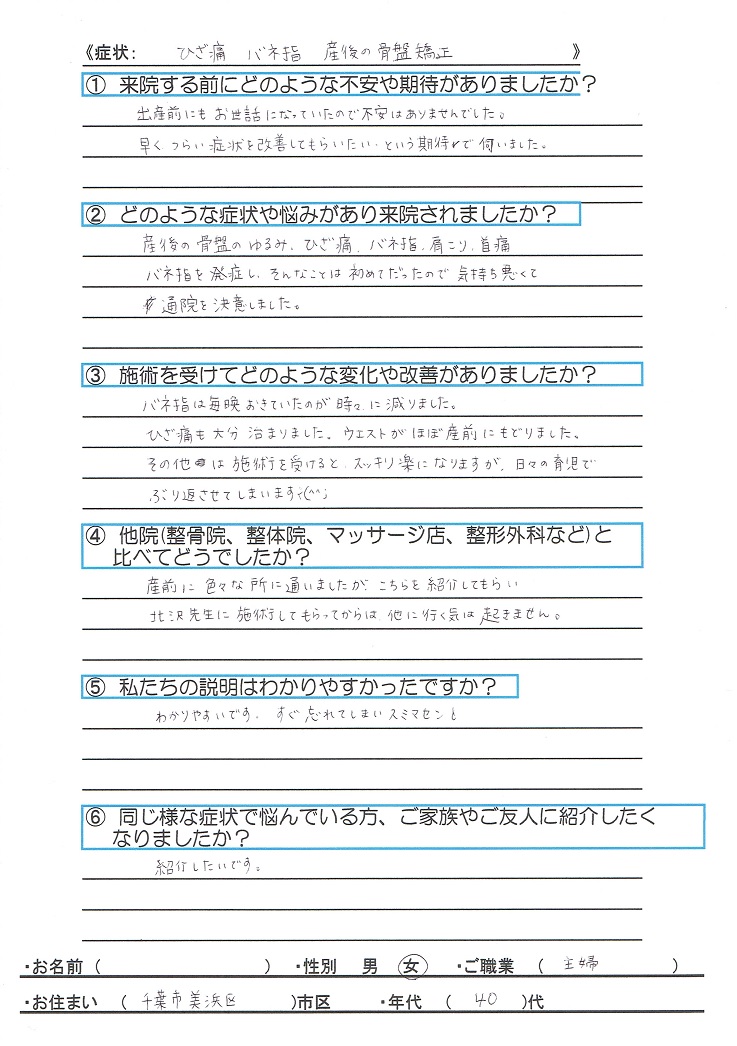 《症状: ひざ痛 バネ指 産後の骨盤矯正 》
① 来院する前にどのような不安や期待がありましたか？
出産前にもお世話になっていたので不安はありませんでした。
早くつらい症状を改善してもらいたい・という期待で伺いました。
② どのような症状や悩みがあり来院されましたか？
産後の骨盤のゆるみ、ひざ痛、バネ指、肩こり、首痛
バネ指を発症し、そんなことは初めてだったので気持ち悪くて
通院を決意しました。
③ 施術を受けてどのような変化や改善がありましたか？
バネ指は毎晩おきていたのが時々に減りました。
ひざ痛も大分治まりました、ウエストがほぼ産前にもどりました、
その他は施術を受けると、スッキリ楽になりますが、日々の育児で
ぶり返させてしまいます(^^;
④ 他院(整骨院、整体院、マッサージ店、整形外科など)と
比べてどうでしたか？
産前に色々な所に通いましたが、こちらを紹介してもらい
北沢先生に施術してもらってからは、他に行く気は起きません。
⑤ 私たちの説明はわかりやすかったですか？
わかりやすいです、すぐ忘れてしまいスミマセン
⑥ 同じ様な症状で悩んでいる方、ご家族やご友人に紹介したく
なりましたか？
紹介したいです。
・お名前 ( ) ・性別 男 女 ・ご職業 ( 主婦 )
・お住まい ( 千葉市美浜区 )市区 ・年代 ( 40 )代